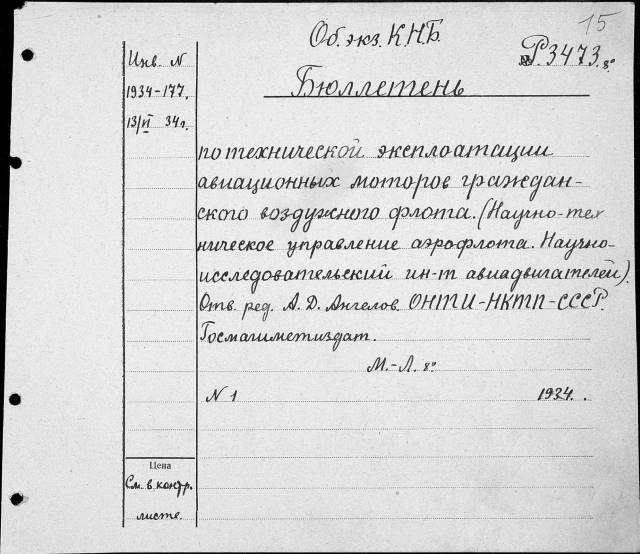 15
Об. экз. К.Н.Б.
Р. 3473. 8°
Инв. N
1934-177.
13/VI 34г.
Бюллетень
по технической эксплоатации
авиационных моторов граждан-
ского воздужного флота. (Научно-тех
ническое управление аэрофлота. Научно-
исследовательский ин-т авиадвигателей).
Отв. ред. А. Д. Ангелов. ОНТИ-НКТП-СССР.
Госмашметиздат.
М.-Л. 8°
N 1 1934.
Цена
См. в контр.
листе.